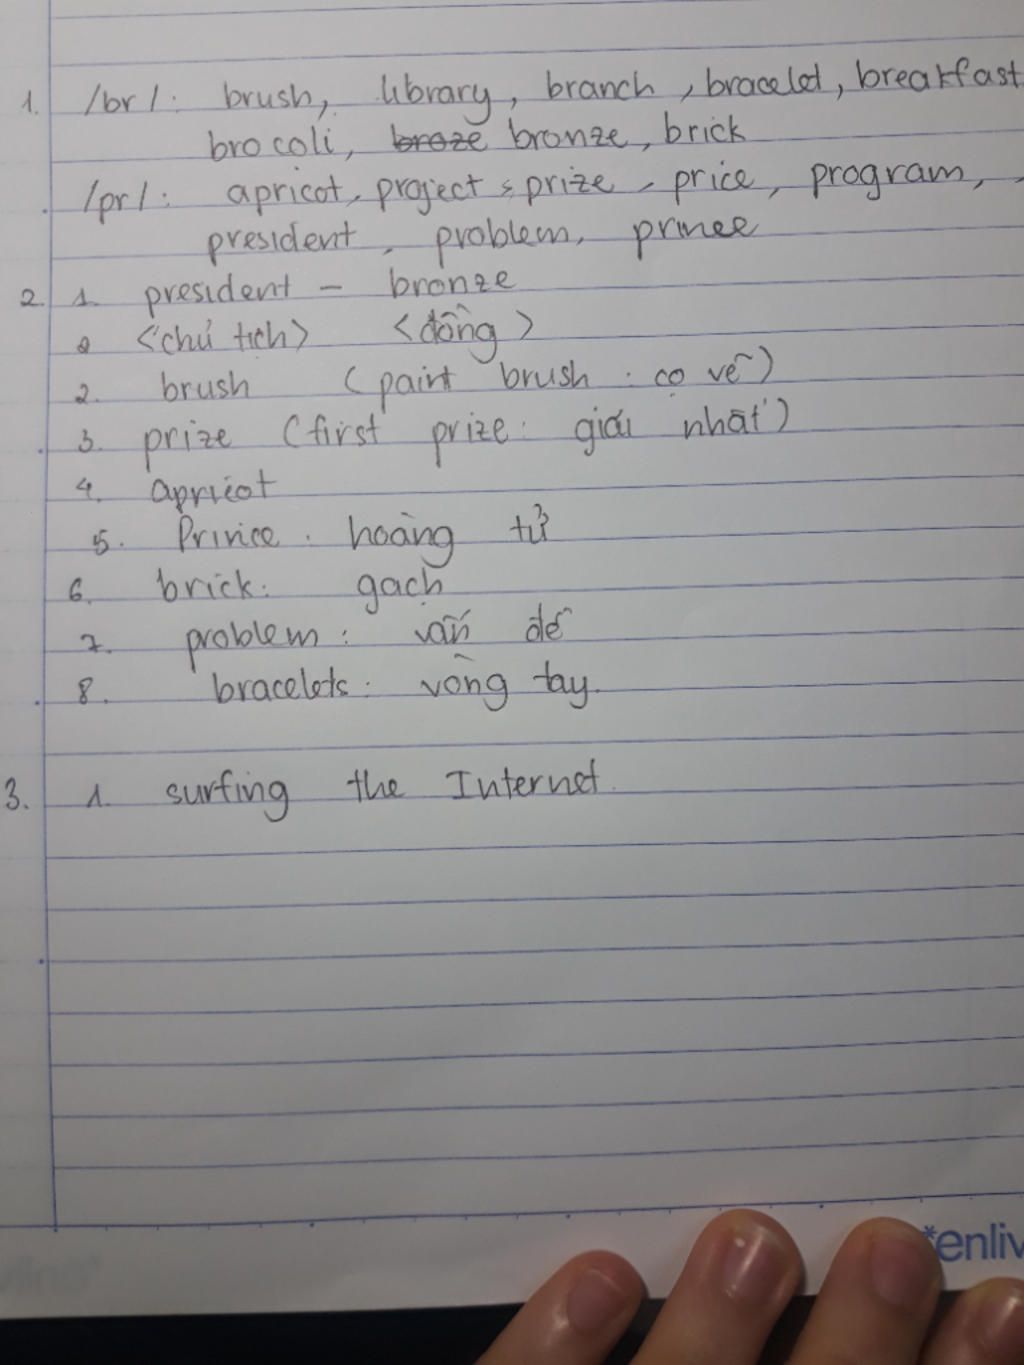 1. /br/: brush, library, branch, bracelet, breakfast
brocoli, broze bronze, brick
/pr/: apricot, project, prize, price, program,
president, problem, prince
2. 1. president - bronze
<chủ tịch> <đồng>
2. brush (paint brush: cọ vẽ)
3. prize (first prize: giải nhất)
4. apricot
5. Prince: hoàng tử
6. brick: gạch
7. problem: vấn đề
8. bracelets: vòng tay.
3. 1. surfing the Internet.
*enliv